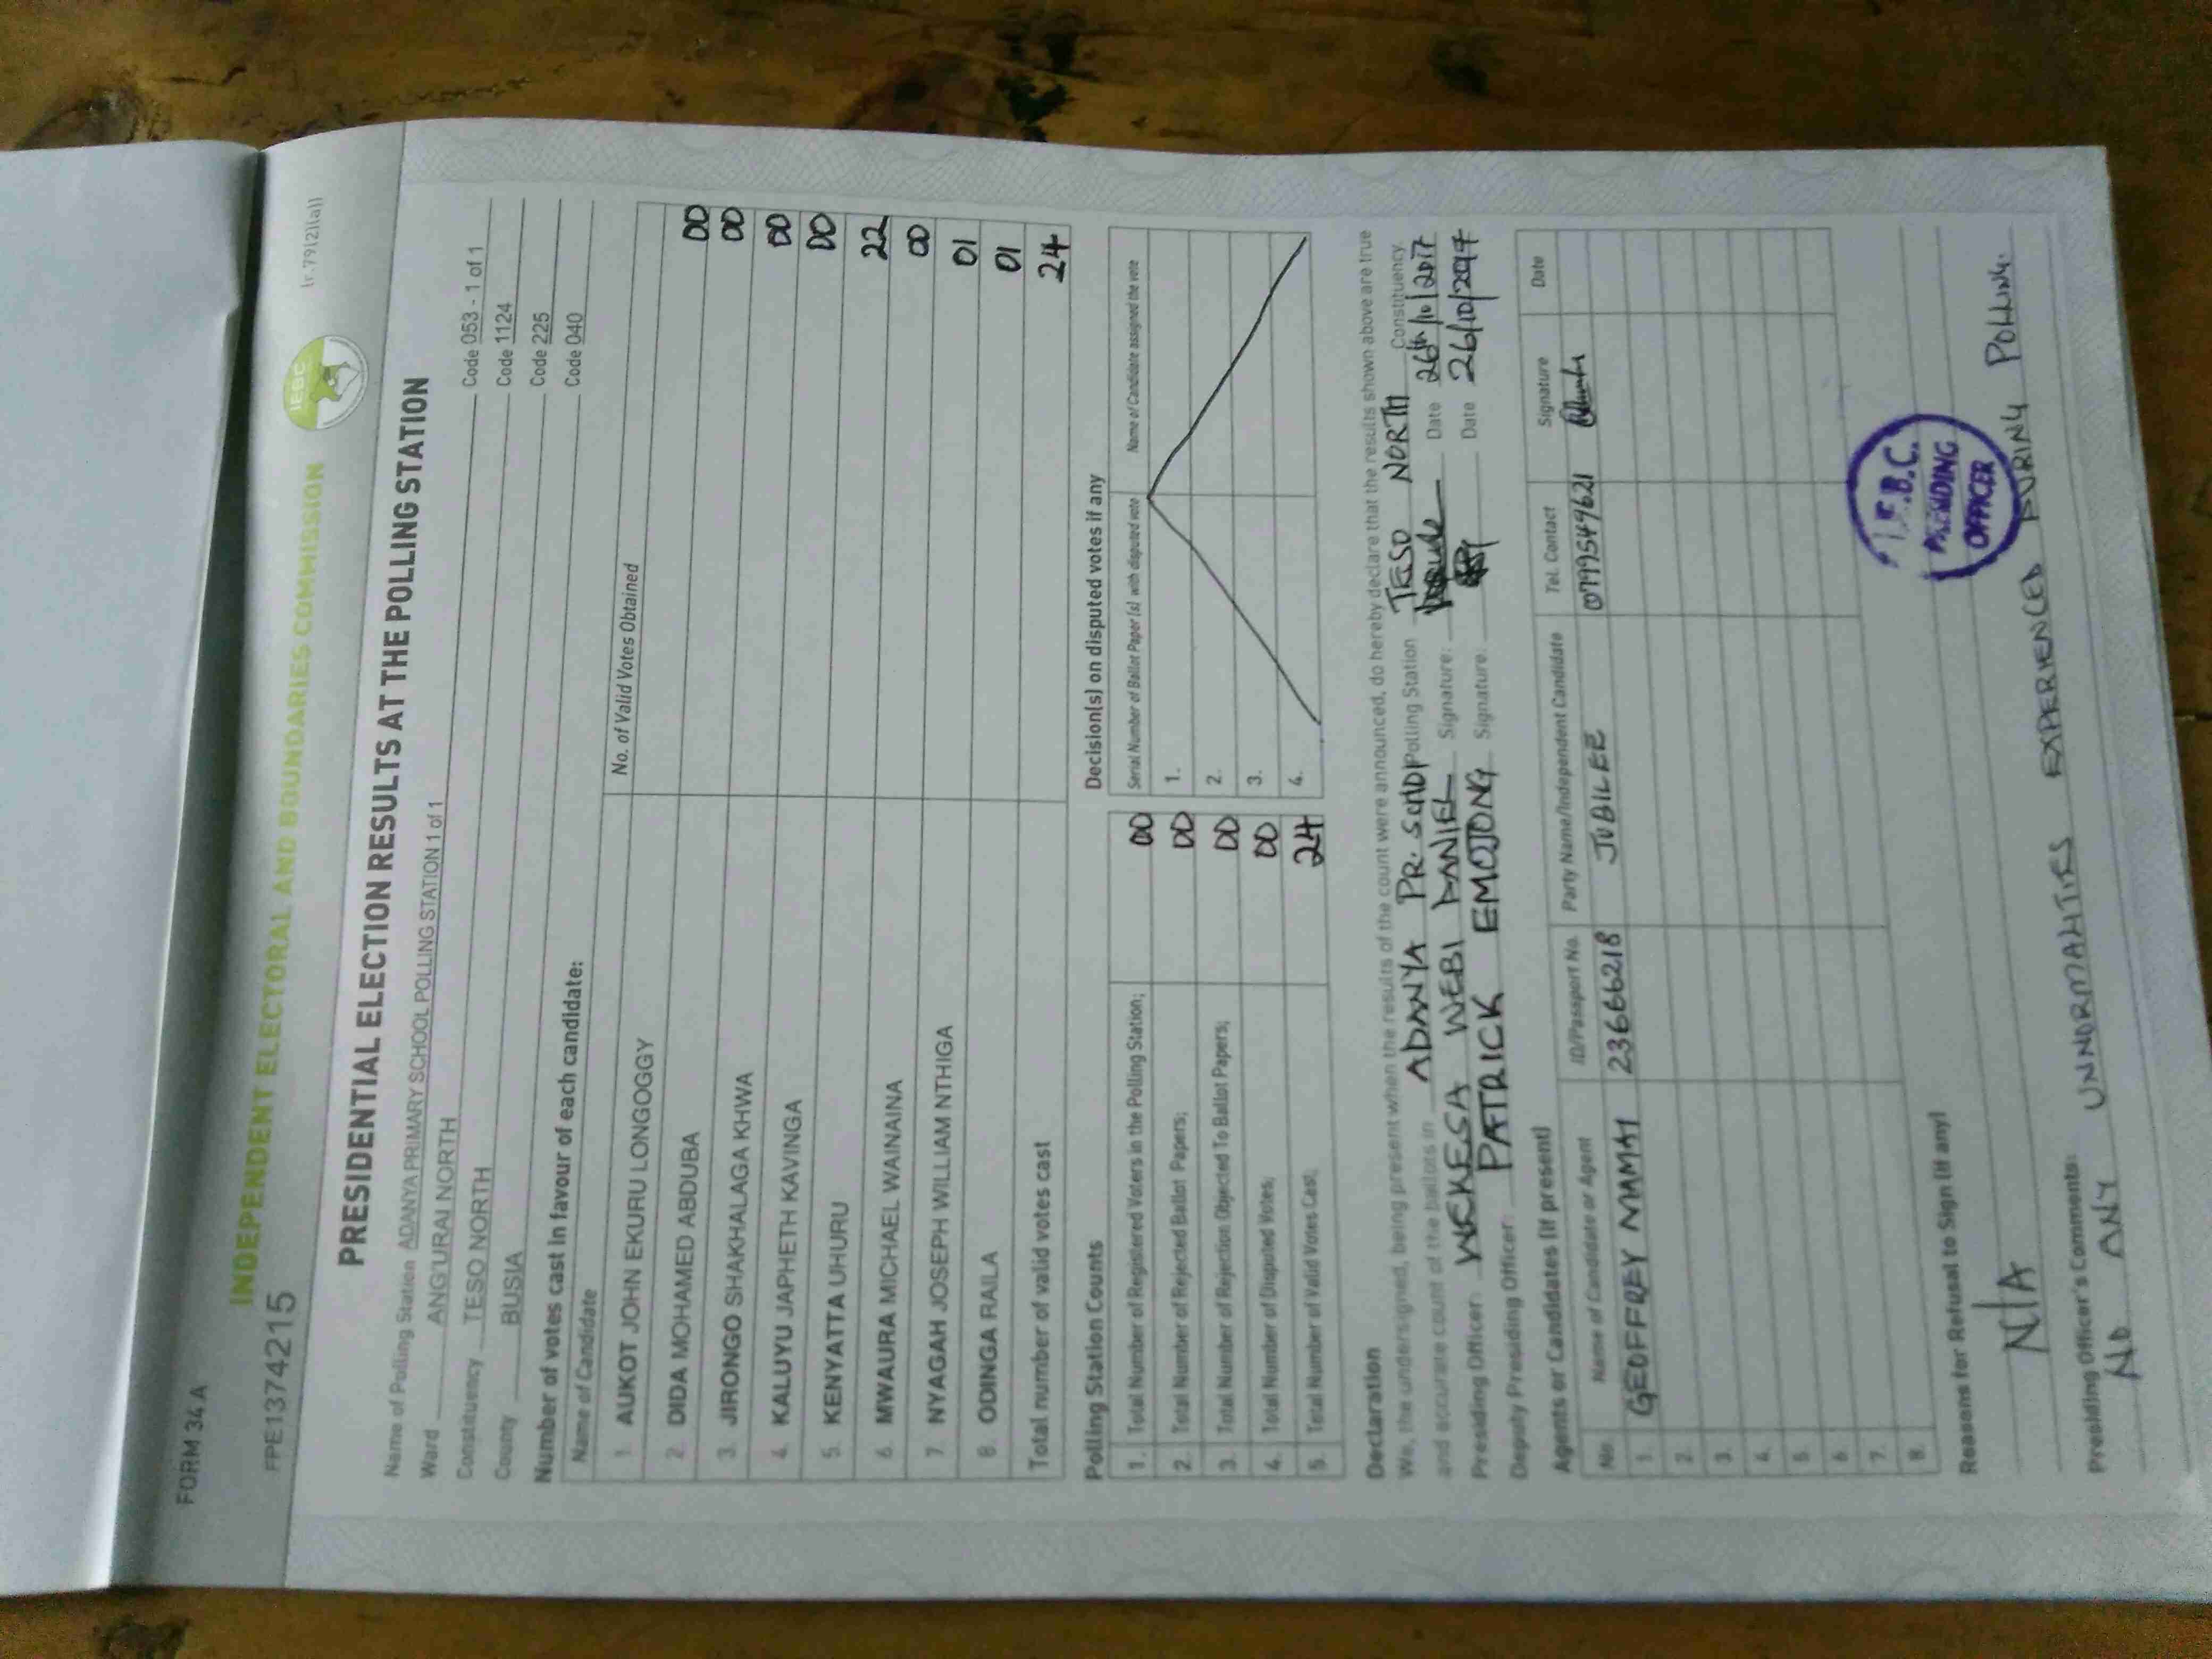 FORM 34A
(r.79(2)(a))
INDEPENDENT ELECTORAL AND BOUNDARIES COMMISSION
IEBC
FPE1374215
PRESIDENTIAL ELECTION RESULTS AT THE POLLING STATION
Name of Polling Station ADANYA PRIMARY SCHOOL POLLING STATION 1 of 1 Code 053 - 1 of 1
Ward ANG'URAI NORTH Code 1124
Constituency TESO NORTH Code 225
County BUSIA Code 040
Number of votes cast in favour of each candidate:
Name of Candidate No. of Valid Votes Obtained
1. AUKOT JOHN EKURU LONGOGGY 00
2. DIDA MOHAMED ABDUBA 00
3. JIRONGO SHAKHALAGA KHWA 00
4. KALUYU JAPHETH KAVINGA 00
5. KENYATTA UHURU 22
6. MWAURA MICHAEL WAINAINA 00
7. NYAGAH JOSEPH WILLIAM NTHIGA 01
8. ODINGA RAILA 01
Total number of valid votes cast 24
Polling Station Counts
1. Total Number of Registered Voters in the Polling Station; 00
2. Total Number of Rejected Ballot Papers; 00
3. Total Number of Rejection Objected To Ballot Papers; 00
4. Total Number of Disputed Votes; 00
5. Total Number of Valid Votes Cast; 24
Decision(s) on disputed votes if any
Serial Number of Ballot Paper (s) with disputed vote Name of Candidate assigned the vote
1.
2.
3.
4.
Declaration
We, the undersigned, being present when the results of the count were announced, do hereby declare that the results shown above are true
and accurate count of the ballots in ADANYA PR. SCHOOL Polling Station TESO NORTH Constituency.
Presiding Officer: WEKESA WEBI DANIEL Signature: Date 26th/10/2017
Deputy Presiding Officer: PATRICK EMOJONG Signature: Date 26/10/2017
Agents or Candidates (if present)
No. Name of Candidate or Agent ID/Passport No. Party Name/Independent Candidate Tel. Contact Signature Date
1. GEOFFREY MAMAI 23666218 JUBILEE 0799544621
2.
3.
4.
5.
6.
7.
8.
I.E.B.C.
PRESIDING
OFFICER
Reasons for Refusal to Sign (if any)
N/A
Presiding Officer's Comments:
NO ANY UNNORMALITIES EXPERIENCED DURING POLLING.